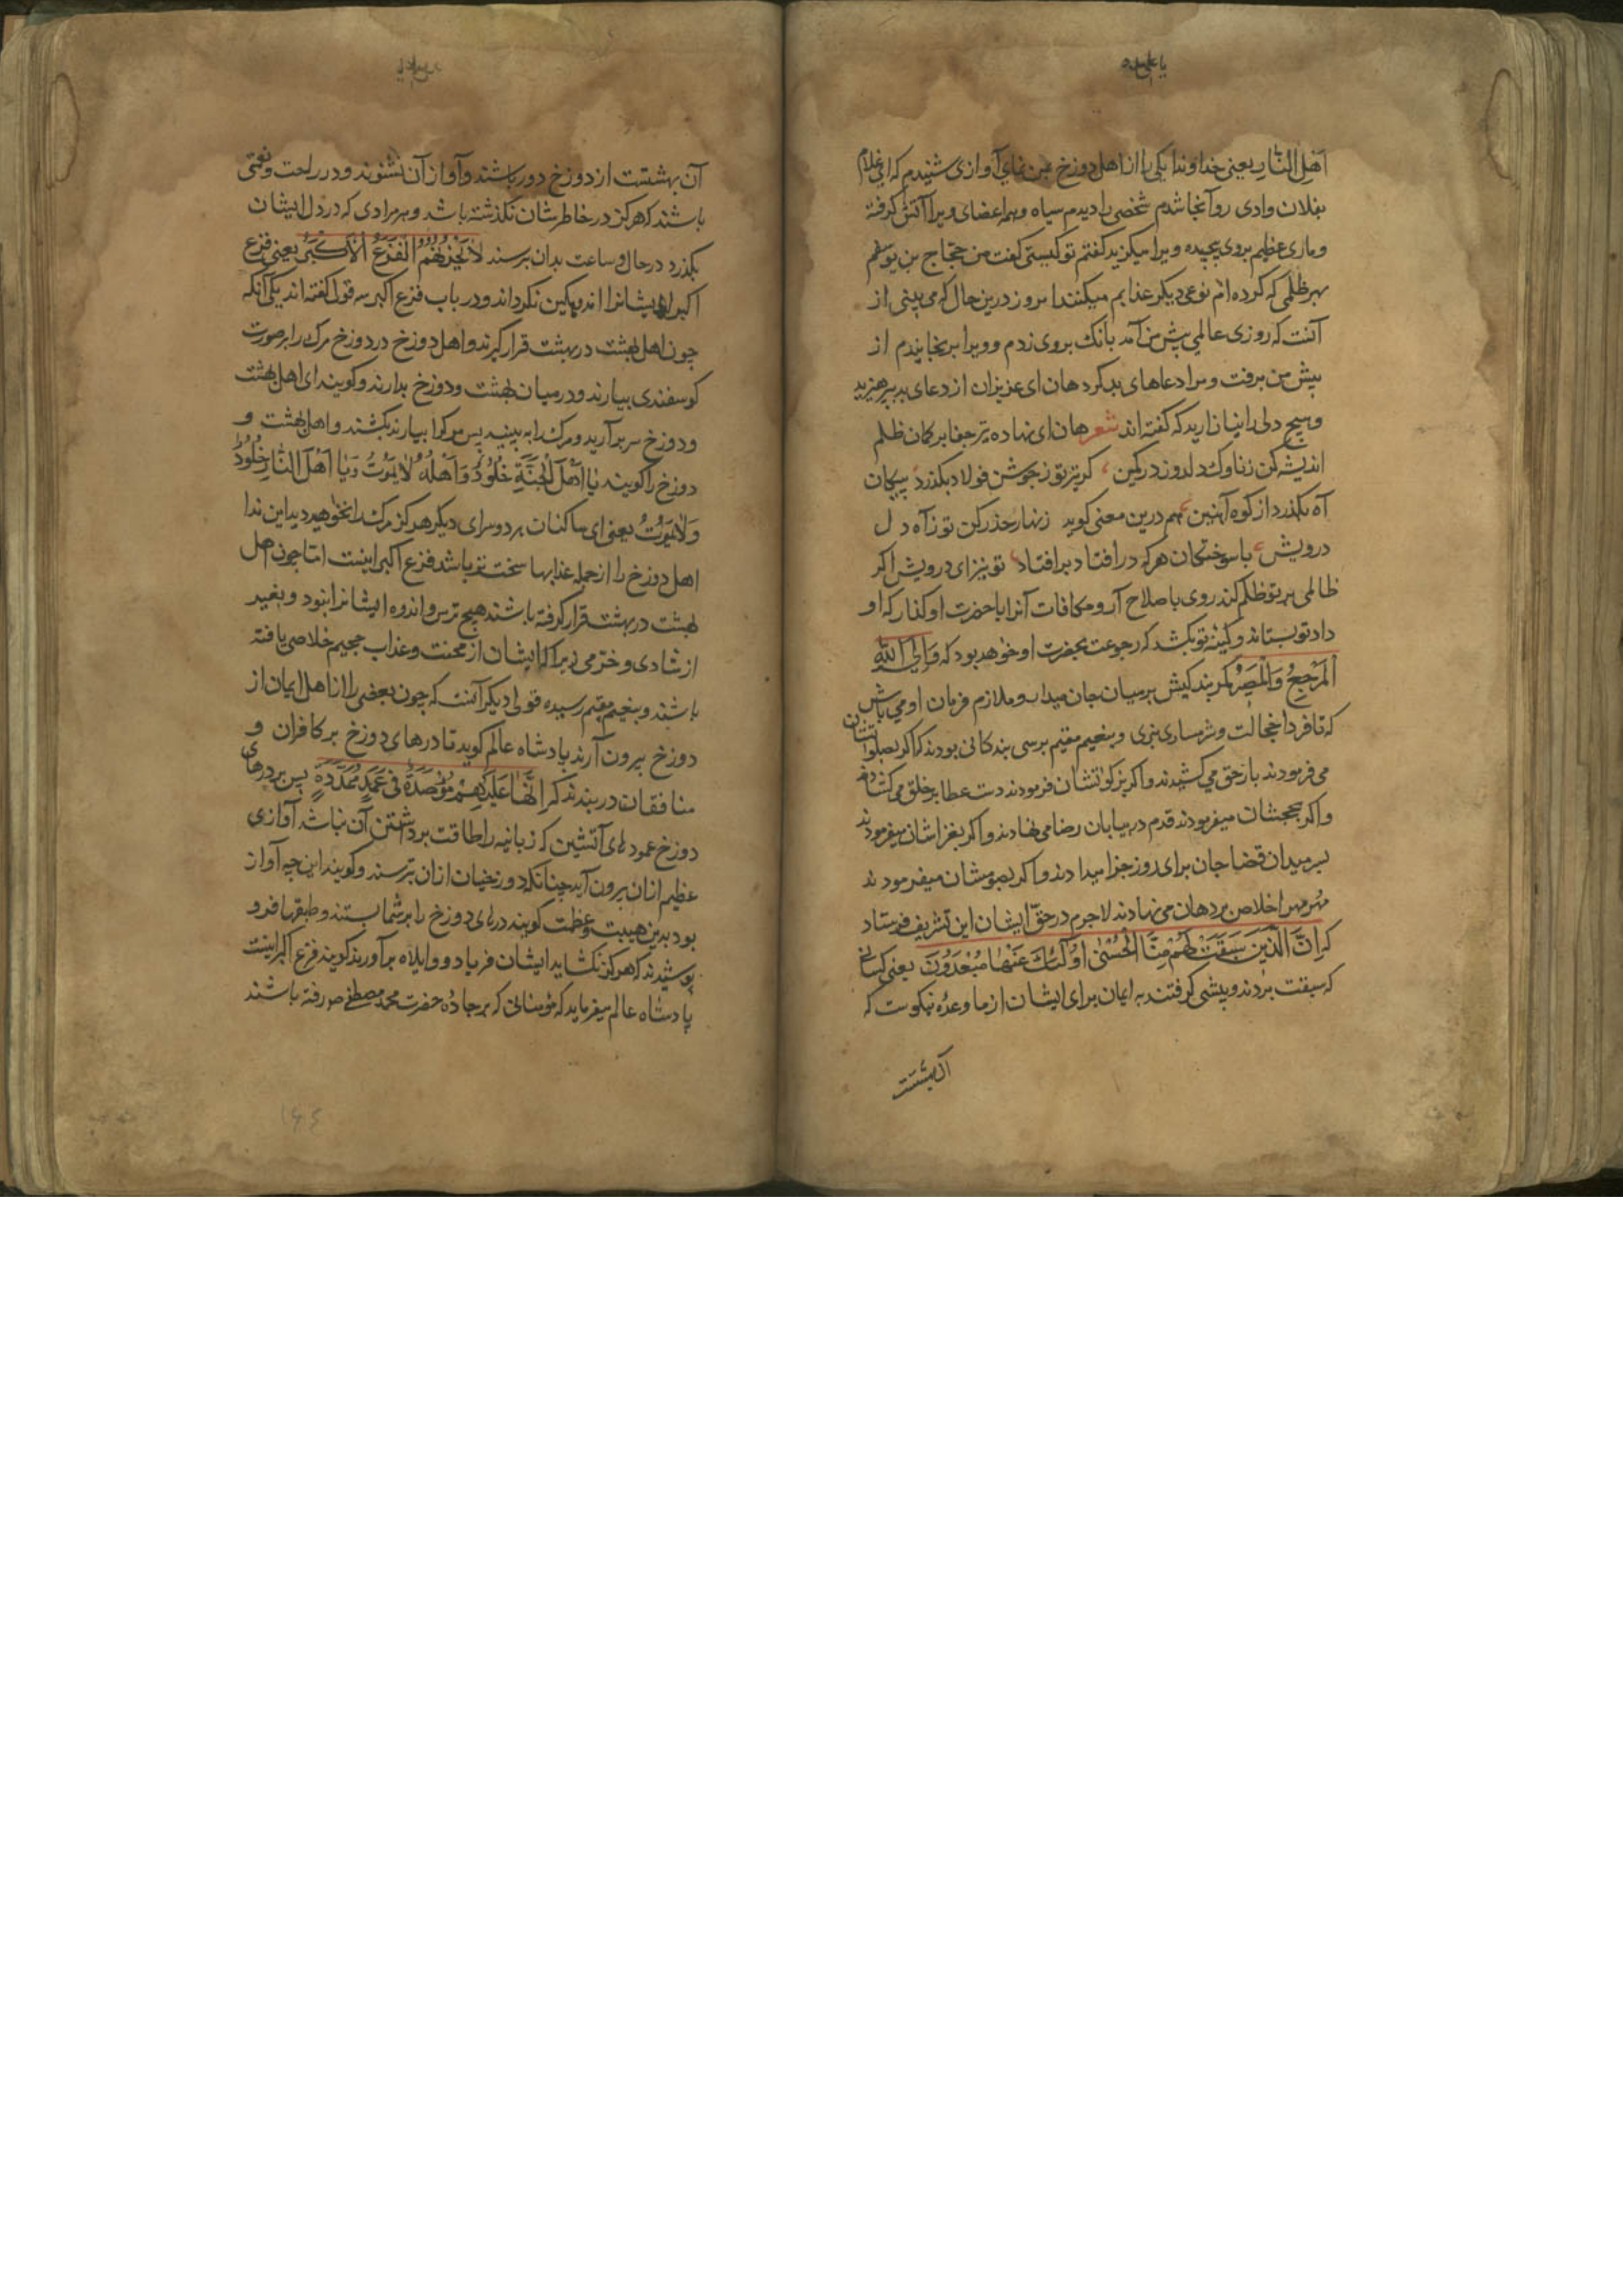 اَهْلِ النّارِ یعنی خداوندا یکی را از اهل دوزخ بمن نمای آوازی شنیدم که ای غلام
بفلان وادی رو آنجا شدم شخصی را دیدم سیاه و همه اعضای ویرا آتش گرفته
و ماری عظیم بر وی پیچیده ویرا میگزید گفتم تو کیستی گفت من حجّاج بن یوسفم
بهر ظلمی که کرده‌ام نوعی دیگر عذابم میکنند امروز درین حال که می بینی از
آنست که روزی عالمی پیش من آمد بانک بروی زدم و ویرا برنجانیدم از
پیش من برفت و مرا دعاهای بد کرد هان ای عزیزان از دعای بد بپرهیزید
و هیچ دلی را نیازارید که گفته‌اند شعر هان ای نهاده تیر جفا بر کمان ظلم
اندیشه کن ز ناوک دلدوز در کمین گر تیر تو ز جوشن فولاد بگذرد پیکان
آه بگذرد از کوه آهنین هم درین معنی گوید زنهار حذر کن تو ز آه دل
درویش با سوختگان هرکه درافتاد برافتاد تو نیز ای درویش اگر
ظالمی بر تو ظلم کند روی باصلاح آر و مکافات آنرا با حضرت او گذار که او
داد تو بستاند و کینه تو بکشد که رجوعت بحضرت او خواهد بود که وَاِلَی اللّٰهِ
الْمَرْجِعُ وَالْمَصِیْرُ کمر بندکیش بر میان جان میدار و ملازم فرمان او می باش
که تا فردا خجالت و شرمساری نبری و بنعیم مقیم برسی بندکانی بودند که اکر بصلواتشان
می فرمودند بار حق می کشیدند و اکر بزکوتشان فرمودند دست عطا بر خلق می کشادند
و اکر بحجشان میفرمودند قدم در بیابان رضا می نهادند و اکر بغزاشان میفرمودند
بر میدان قضا جان برای روز جزا میدادند و اکر بصومشان میفرمودند
مُهر مهر اخلاص بر دهان می نهادند لاجرم در حقّ ایشان این تشریف فرستاد
که اِنَّ الَّذِیْنَ سَبَقَتْ لَهُمْ مِنَّا الْحُسْنٰی اُولٰئِکَ عَنْهَا مُبْعَدُوْنَ یعنی کسانی
که سبقت بردند و پیشی گرفتند به ایمان برای ایشان از ما وعدهٔ نیکوست که
آن بهشتست
آن بهشتست از دوزخ دور باشند و آواز آن نشنوند و در راحت و نعمتی
باشند که هرکز در خاطرشان نکذشته باشد و هر مرادی که در دل ایشان
بکذرد در حال و ساعت بدان برسند لَا یَحْزُنُهُمُ الْفَزَعُ الْاَکْبَرُ یعنی فزع
اکبر ایشانرا اندوهکین نکرداند و در باب فزع اکبر سه قول کفته اند یکی آنکه
چون اهل بهشت در بهشت قرار کیرند و اهل دوزخ در دوزخ مرک را بر صورت
کوسفندی بیارند و در میان بهشت و دوزخ بدارند و کویند ای اهل بهشت
و دوزخ سر بر آرید و مرک را به بینید پس مرک را بیارند بکشند و اهل بهشت و
دوزخ را کویند یَا اَهْلَ الْجَنَّةِ خُلُوْدٌ وَاَهْلُهُ لَا یَمُوْتُ وَیَا اَهْلَ النَّارِ خُلُوْدٌ
وَلَا یَمُوْتُ یعنی ای ساکنان هر دو سرای دیگر هرکز مرک را نخواهید دید این ندا
اهل دوزخ را از جمله عذابها سخت تر باشد فزع اکبر اینست امّا چون اهل
بهشت در بهشت قرار کرفته باشند هیچ ترس و اندوه ایشانرا نبود و بغیر
از شادی و خرّمی زیرا که ایشان از محنت و عذاب جحیم خلاصی یافته
باشند و بنعیم مقیم رسیده قولی دیکر آنست که چون بعضی را از اهل ایمان از
دوزخ بیرون آرند پادشاه عالم کوید تا درهای دوزخ بر کافران و
منافقان در بندند که اِنَّهَا عَلَیْهِمْ مُؤْصَدَةٌ فِیْ عَمَدٍ مُمَدَّدَةٍ پس بر درهای
دوزخ عمودهای آتشین که زبانیه را طاقت برداشتن آن نباشد آوازی
عظیم از آن بیرون آید چنانکه دوزخیان ازان بترسند و کویند این چه آواز
بود بدین هیبت و عظمت کویند درهای دوزخ را بر شما بستند و طبقها فرو
پوشیدند که هرکز نکشاید ایشان فریاد و واویلاه برآورند کویند فزع اکبر اینست
پادشاه عالم میفرماید که مؤمنانی که بر جادهٔ حضرت محمد مصطفی ص رفته باشند
۱۶۴